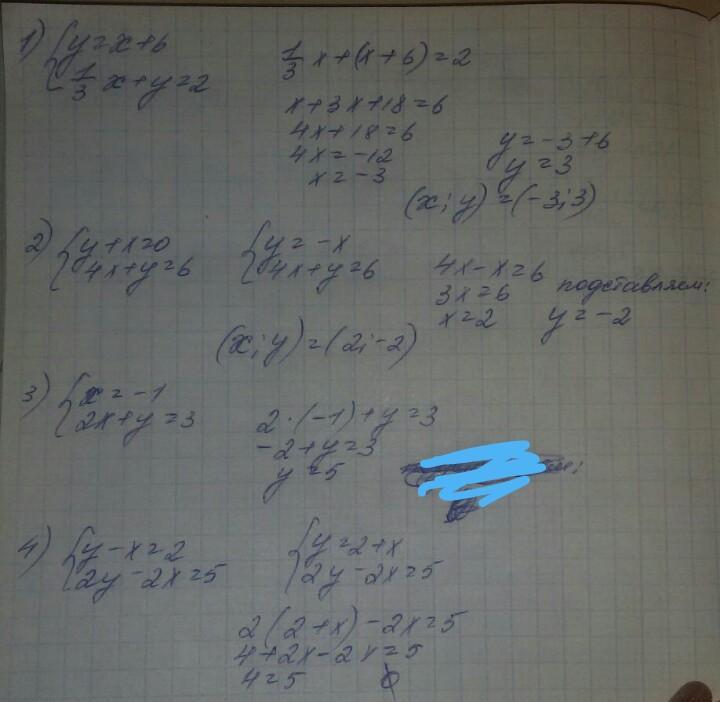 1) { y=x+6
{ 1/3 x+y=2
1/3 x+(x+6)=2
x+3x+18=6
4x+18=6
4x=-12
x=-3
y=-3+6
y=3
(x;y)=(-3;3)
2) { y+x=0
{ 4x+y=6
{ y=-x
{ 4x+y=6
4x-x=6
3x=6
x=2
подставляем:
y=-2
(x;y)=(2;-2)
3) { x=-1
{ 2x+y=3
2·(-1)+y=3
-2+y=3
y=5
4) { y-x=2
{ 2y-2x=5
{ y=2+x
{ 2y-2x=5
2(2+x)-2x=5
4+2x-2x=5
4=5